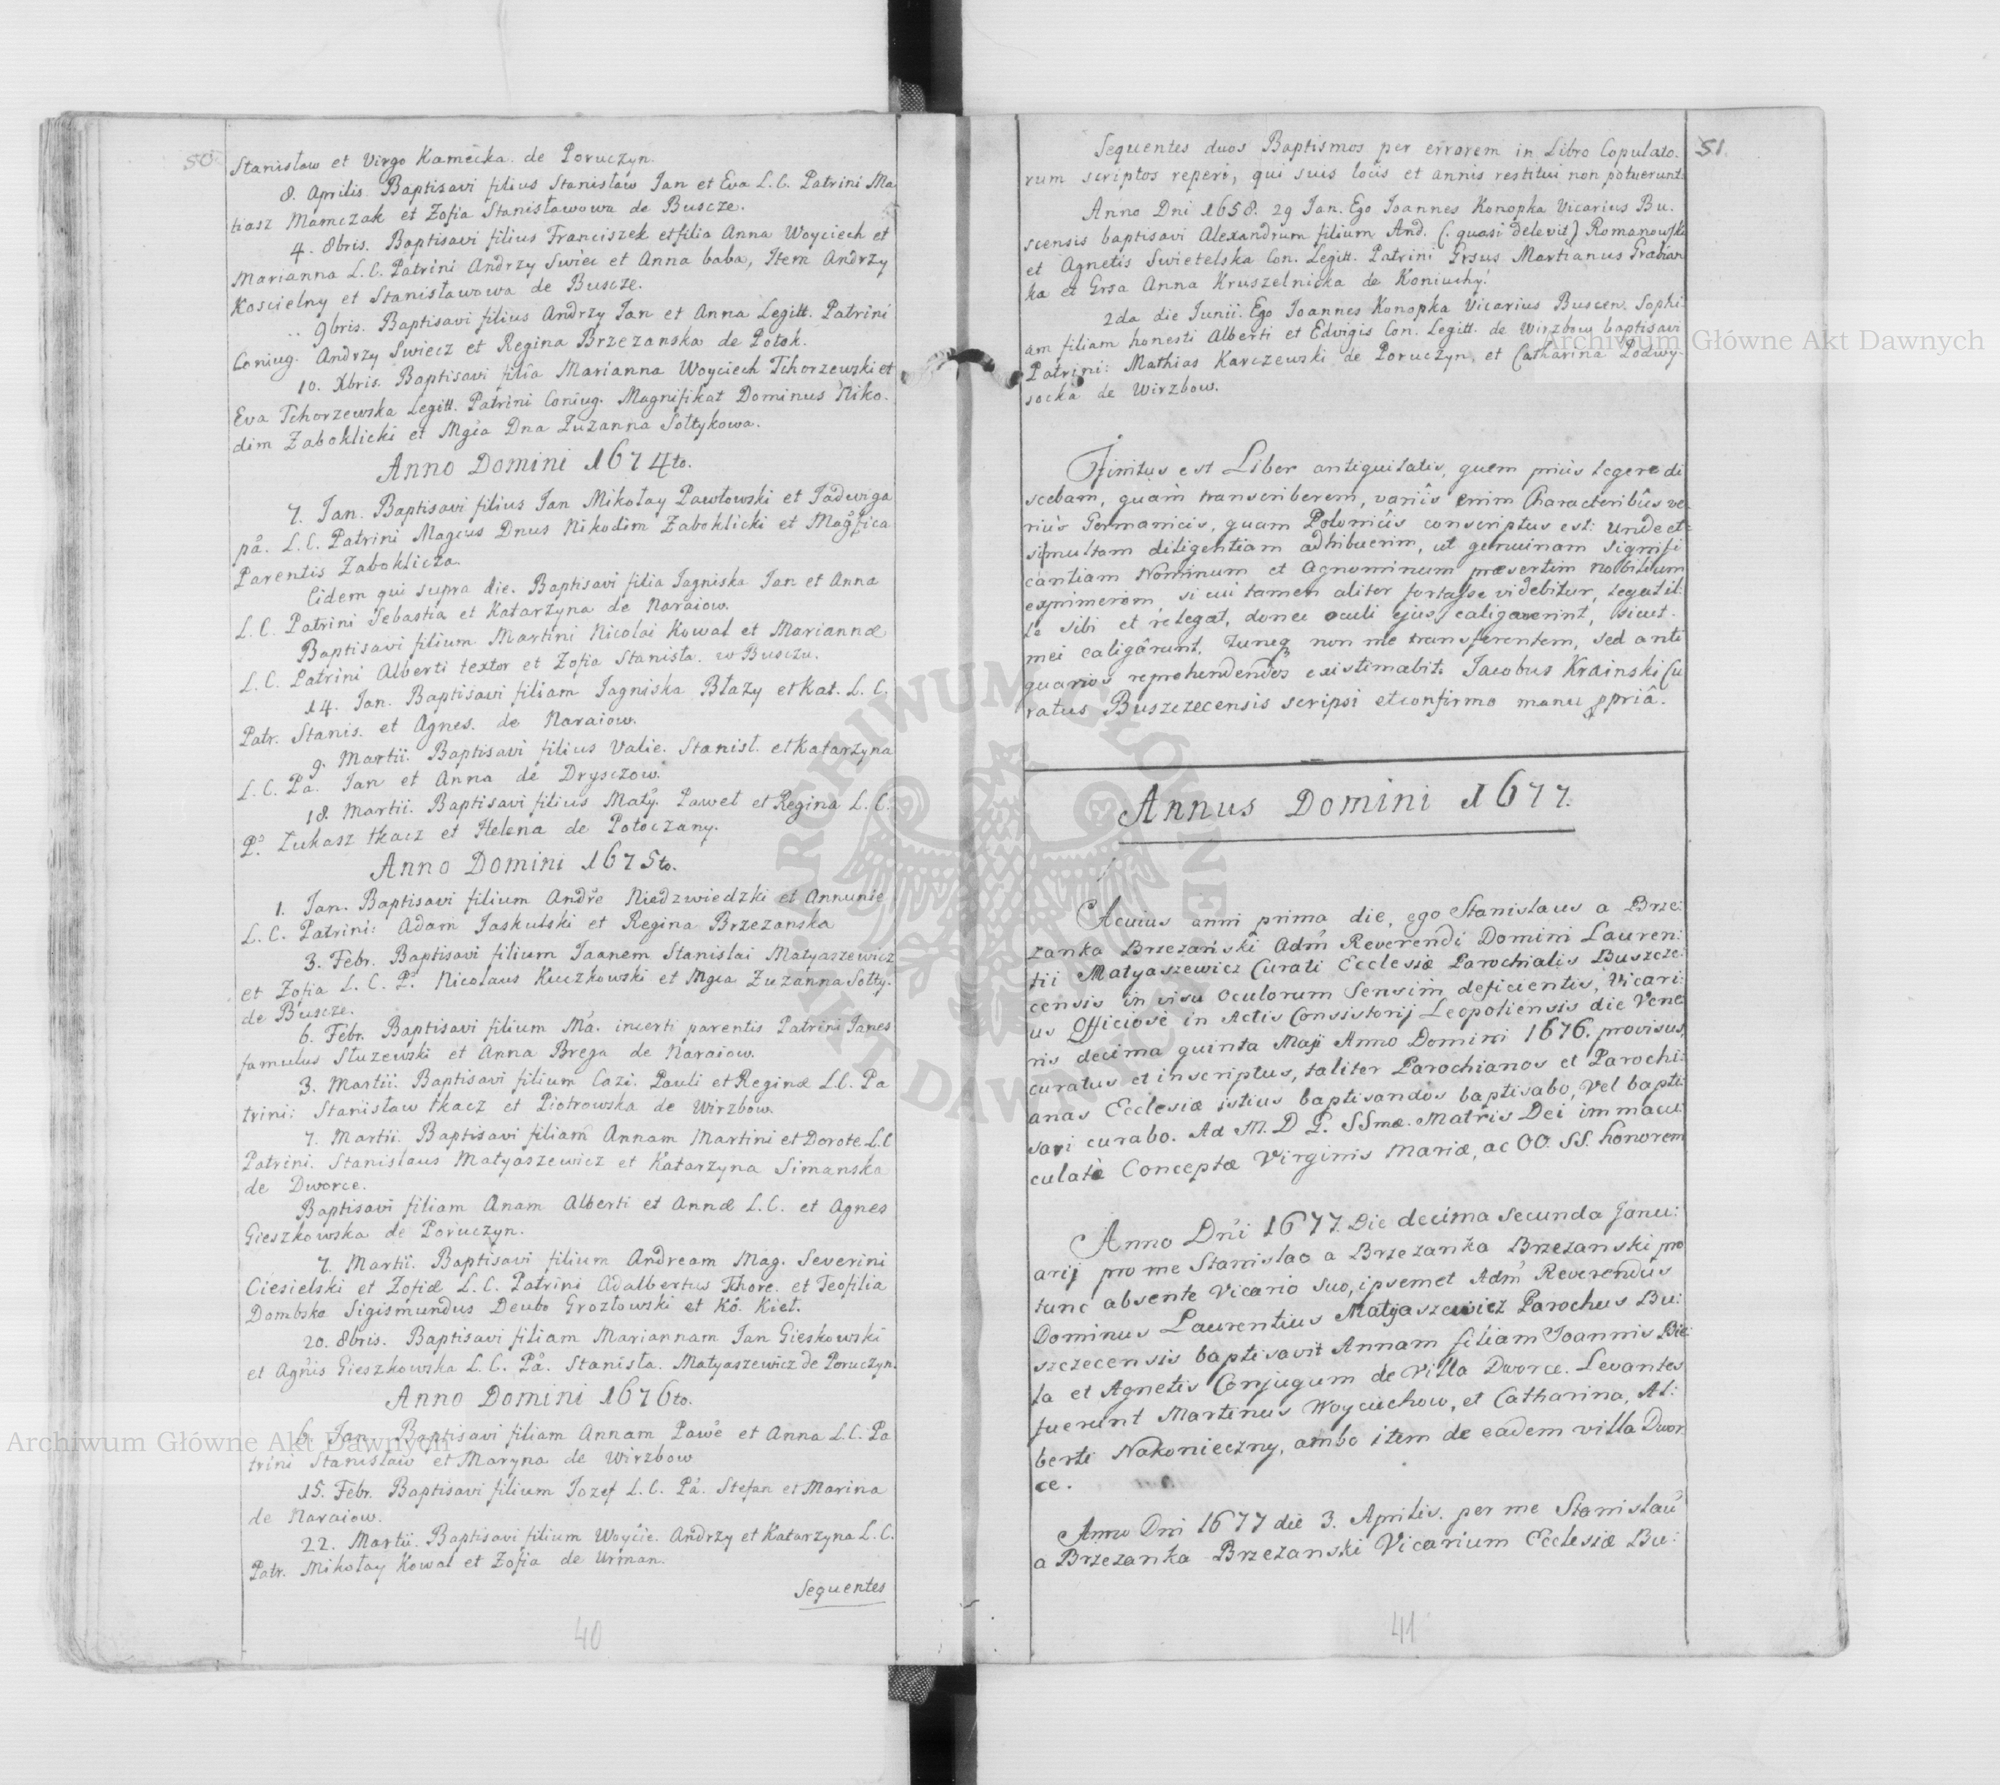 50
Stanisław et Virgo Kamecka. de Poruczyn.
8. Aprilis. Baptisavi filius Stanisław Jan et Eva L.C. Patrini Ma
tiasz Mamczak et Zofia Stanisławowa de Buscze.
4. 8bris. Baptisavi filius Franciszek et filia Anna Woyciech et
Marianna L.C. Patrini Andrzy Swiec et Anna baba, Item Andrzy
Koscielny et Stanisławowa de Buscze.
9bris. Baptisavi filius Andrzy Jan et Anna Legitt. Patrini
Coniug. Andrzy Swiecz et Regina Brzezanska de Potok.
10. Xbris. Baptisavi filia Marianna Woyciech Tchorzewski et
Eva Tchorzewska Legitt. Patrini Coniug. Magnifikat Dominus Niko-
dim Zaboklicki et Mgia Dna Zuzanna Sołtykowa.
Anno Domini 1674to.
7. Jan. Baptisavi filius Jan Mikołay Pawłowski et Jadwiga
pa. L.C. Patrini Magcus Dnus Nikodim Zaboklicki et Magfica
Parentis Zaboklicza.
Eidem qui supra die. Baptisavi filia Jagniska Jan et Anna
L.C. Patrini Sebastia et Katarzyna de Naraiow.
Baptisavi filium Martini Nicolai Kowal et Mariannæ
L.C. Patrini Alberti textor et Zofia Stanisła. w Busczu.
14. Jan. Baptisavi filiam Jagniska Błazy et Kat. L.C.
Patr. Stanis. et Agnes. de Naraiow.
9. Martii. Baptisavi filius Valie. Stanisł. et Katarzyna
L.C. Pa. Jan et Anna de Dryszczow.
18. Martii. Baptisavi filius Maty. Paweł et Regina L.C.
P. Łukasz tkacz et Helena de Potoczany.
Anno Domini 1675to.
1. Jan. Baptisavi filium Andre Niedzwiedzki et Annunie
L.C. Patrini: Adam Jaskulski et Regina Brzezanska
3. Febr. Baptisavi filium Joanem Stanislai Matyaszewicz
et Zofia L.C. P. Nicolaus Kuczkowski et Mgia Zuzanna Sołty.
de Buscze.
6. Febr. Baptisavi filium Ma. incerti parentis Patrini Janes
famulus Słuzewski et Anna Brega de Naraiow.
3. Martii. Baptisavi filium Cazi. Pauli et Reginæ L.C. Pa
trini: Stanisław tkacz et Piotrowska de Wirzbow.
7. Martii. Baptisavi filiam Annam Martini et Dorote L.C
Patrini. Stanislaus Matyaszewicz et Katarzyna Simanska
de Dworce.
Baptisavi filiam Anam Alberti et Annæ L.C. et Agnes
Gieszkowska de Poruczyn.
7. Martii. Baptisavi filium Andream Mag. Severini
Ciesielski et Zofiæ L.C. Patrini Adalbertus Thore. et Teofilia
Dombska Sigismundus Deubo Grozłowski et Ko. Kieł.
20. 8bris. Baptisavi filiam Mariannam Jan Gieskowski
et Agnis Gieszkowska L.C. Pa. Stanisła. Matyaszewicz de Poruczyn.
Anno Domini 1676to.
6. Jan. Baptisavi filiam Annam Pawe et Anna L.C. Pa
trini Stanisław et Maryna de Wirzbow
15. Febr. Baptisavi filium Jozef L.C. Pa. Stefan et Marina
de Naraiow.
22. Martii. Baptisavi filium Woycie. Andrzy et Katarzyna L.C.
Patr. Mikołay Kowal et Zofia de Urman.
Sequentes
40
51.
Sequentes duos Baptismos per errorem in Libro Copulato-
rum scriptos reperi, qui suis locis et annis restitui non potuerunt.
Anno Dni 1658. 29 Jan. Ego Joannes Konopka Vicarius Bu-
scensis baptisavi Alexandrum filium And. (. quasi delevit) Romanowski
et Agnetis Swietelska Con. Legitt. Patrini Grsus Martianus Grabian
ka et Grsa Anna Kruszelnicka de Koniuchy.
2da die Junii. Ego Joannes Konopka Vicarius Buscen. Sophi-
am filiam honesti Alberti et Edvigis Con. Legitt. de Wirzbow baptisavi
Patrini: Mathias Karczewski de Poruczyn et Catharina Podwy-
socka de Wirzbow.
Finitus est Liber antiquitatis, quem prius legere di
scebam, quam transcriberem, variis enim Characteribus ve
rius Germanicis, quam Polonicis conscriptus est: unde et
si multam diligentiam adhibuerim, ut genuinam signifi
cantiam Nominum et Agnominum præsertim nobilium
exprimerem, si cui tamen aliter fortasse videbitur, legat il-
le sibi et relegat, donec oculi ejus caligaverint, sicut
mei caligârunt. Tuncq non me transferentem, sed anti
quarios reprehendendos existimabit. Jacobus Krainski Cu
ratus Buszczecensis scripsi et confirmo manu ppriâ.
Annus Domini 1677.
Acuius anni prima die, ego Stanislaus a Brze:
zanka Brzezański Adm Reverendi Domini Lauren:
tii Matyaszewicz Curati Ecclesiæ Parochialis Buszcze:
censis in visu oculorum sensim deficientis, Vicari:
us Officiosè in Actis Consistorij Leopoliensis die Vene
ris decima quinta Maji Anno Domini 1676. provisus,
curatus et inscriptus, taliter Parochianos et Parochi:
anas Ecclesiæ istius baptisandos baptisabo, vel bapti:
sari curabo. Ad M.D.G. SSmæ. Matris Dei immacu:
culatæ Conceptæ Virginis Mariæ, ac OO. SS. honorem
Anno Dni 1677. Die decima secunda Janu:
arij pro me Stanislao a Brzezanka Brzezanski pro
tunc absente Vicario suo, ipsemet Adm Reverendus
Dominus Laurentius Matyaszewicz Parochus Bu:
szczecensis baptisavit Annam filiam Joannis Bie:
ła et Agnetis Conjugum de Villa Dworce. Levantes
fuerunt Martinus Woyciuchow, et Catharina, Al:
berti Nakonieczny, ambo item de eadem villa Dwor
ce.
Anno Dni 1677 die 3. Aprilis. per me Stanislau
a Brzezanka Brzezanski Vicarium Ecclesiæ Bu:
41
Archiwum Główne Akt Dawnych
Archiwum Główne Akt Dawnych
ARCHIWUM GŁÓWNE AKT DAWNYCH